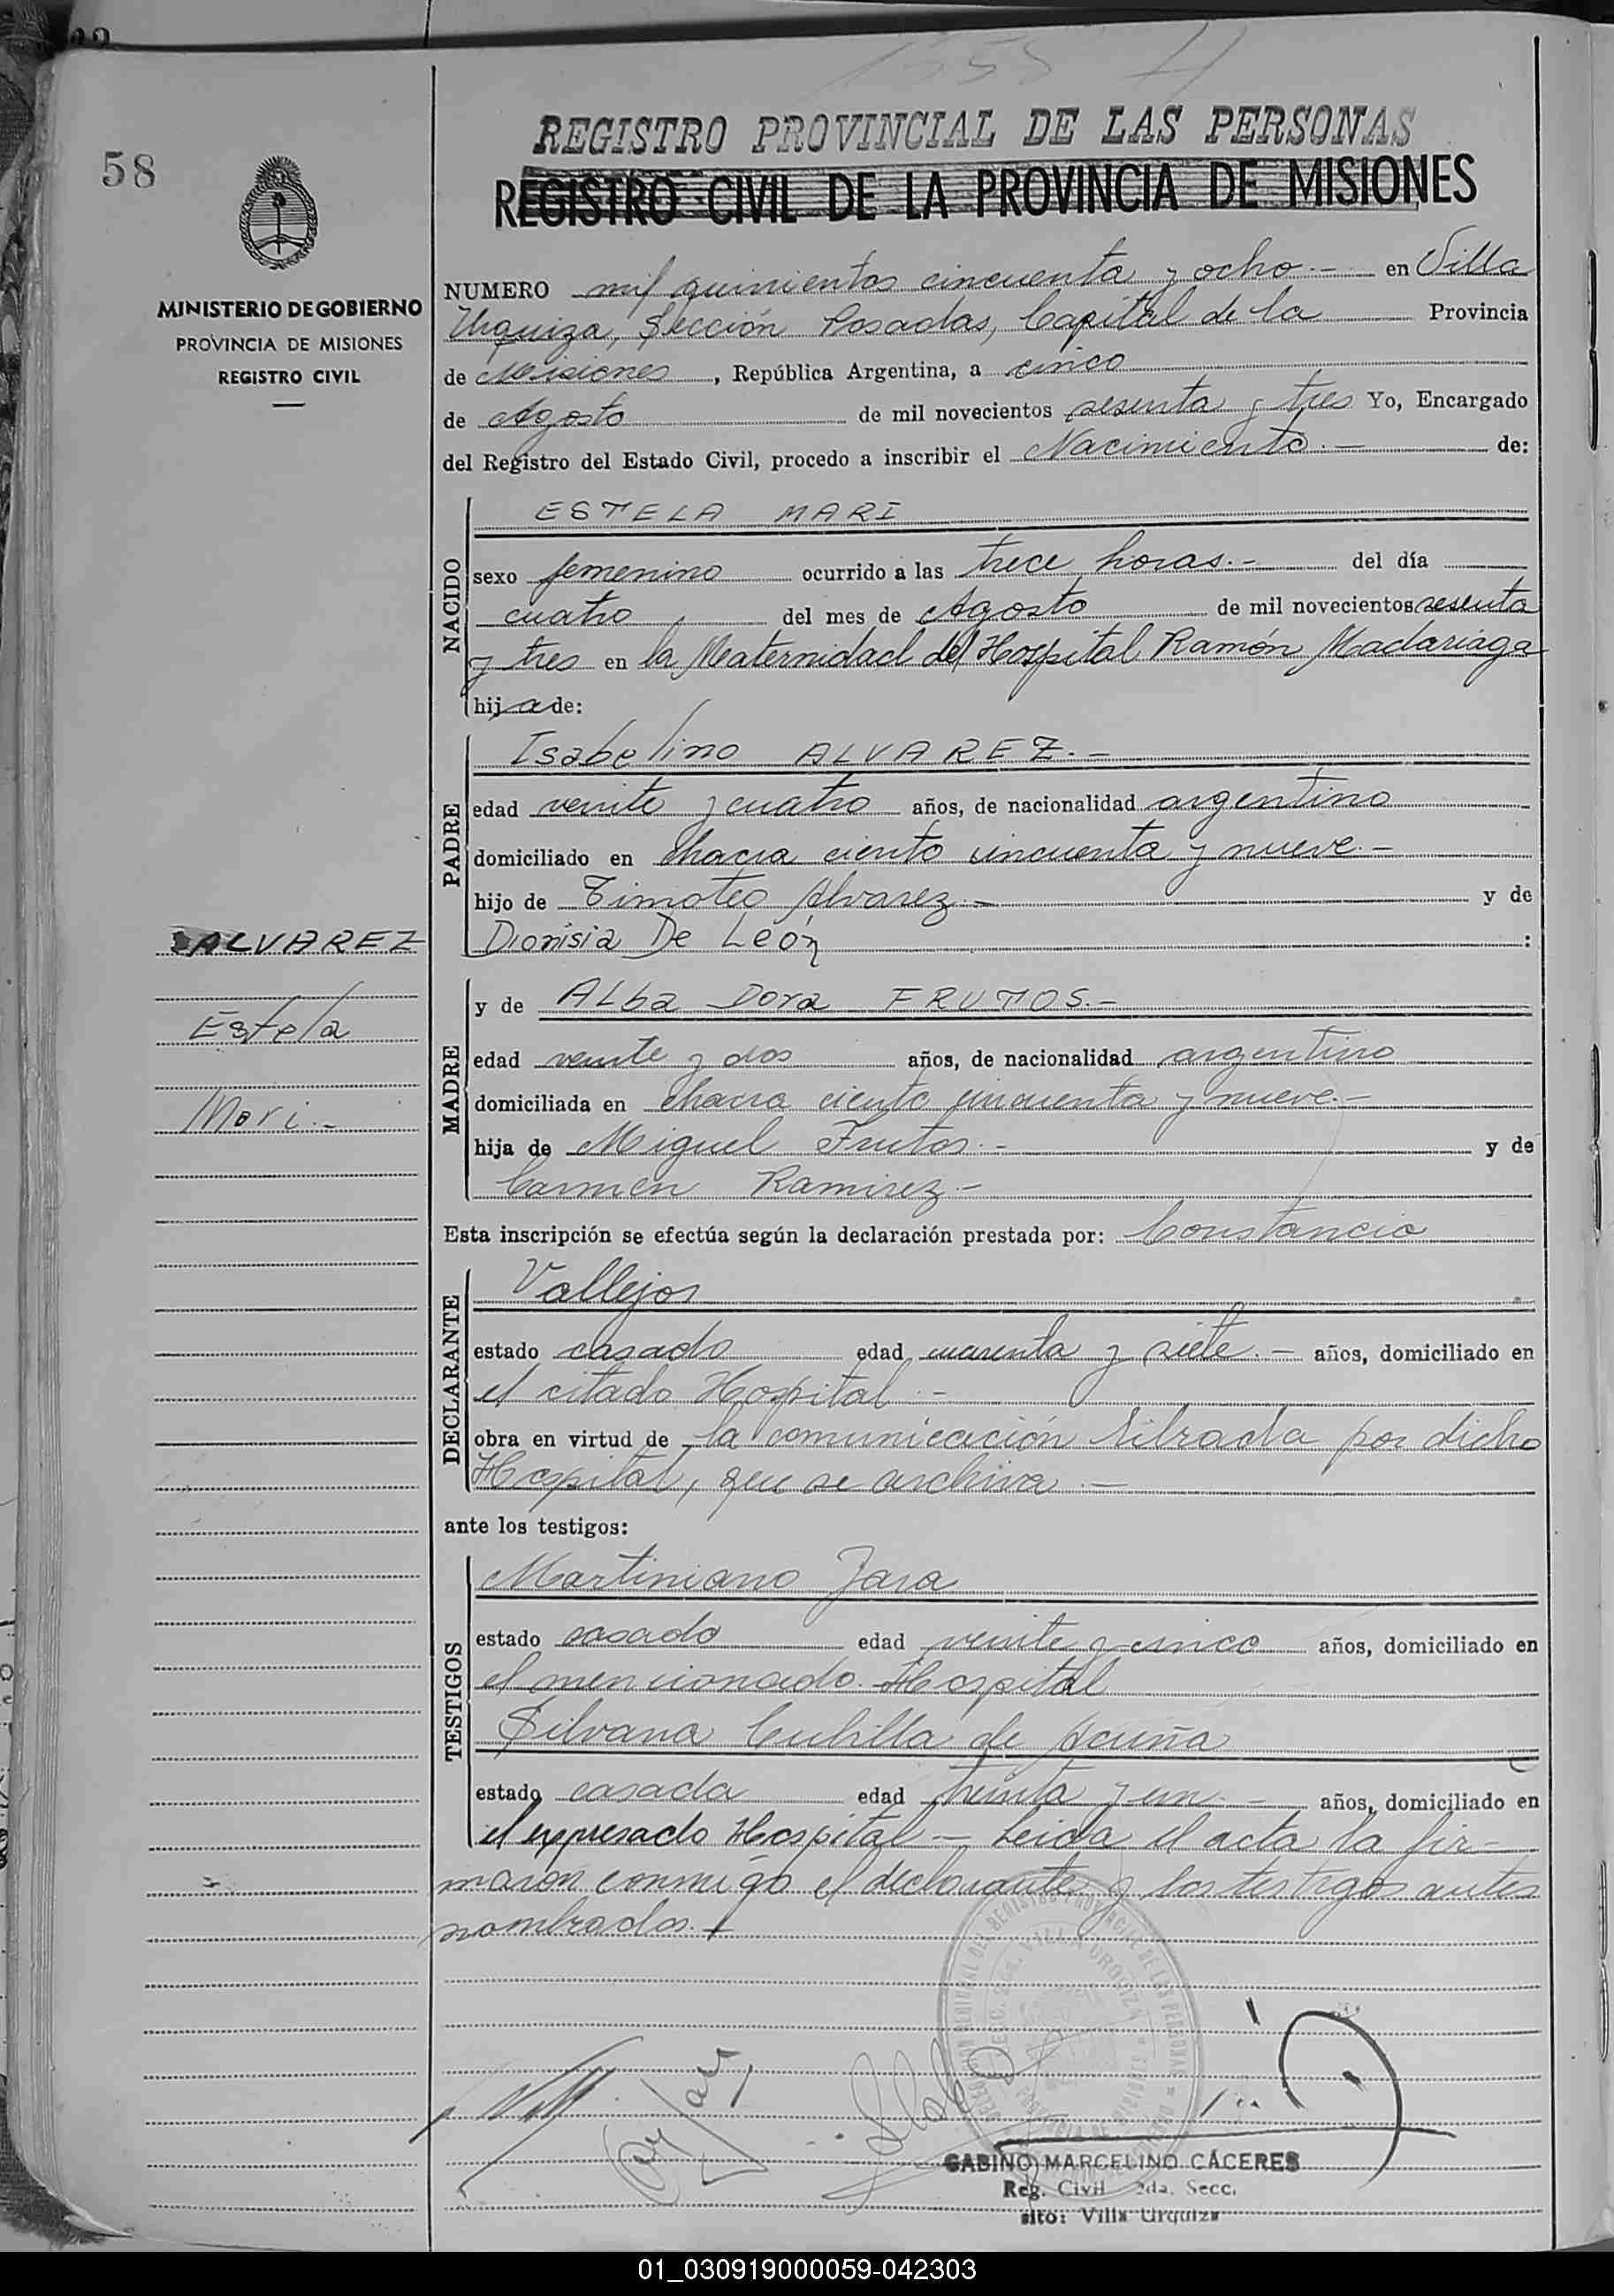 58
REGISTRO PROVINCIAL DE LAS PERSONAS
REGISTRO CIVIL DE LA PROVINCIA DE MISIONES
MINISTERIO DE GOBIERNO
PROVINCIA DE MISIONES
REGISTRO CIVIL
NUMERO mil quinientos cincuenta y ocho.- en Villa
Urquiza, Sección Posadas, Capital de la Provincia
de Misiones, República Argentina, a cinco
de Agosto de mil novecientos sesenta y tres Yo, Encargado
del Registro del Estado Civil, procedo a inscribir el Nacimiento.- de:
NACIDO
ESTELA MARI
sexo femenino ocurrido a las trece horas.- del día
cuatro del mes de Agosto de mil novecientos sesenta
y tres en la Maternidad del Hospital Ramón Madariaga
hija de:
PADRE
Isabelino ALVAREZ.-
edad veinte y cuatro años, de nacionalidad argentino
domiciliado en Chacra ciento cincuenta y nueve.-
hijo de Timoteo Alvarez.- y de
Dionisia De León :
ALVAREZ
Estela
Mari.-
MADRE
y de Alba Dora FRUTOS.-
edad veinte y dos años, de nacionalidad argentino
domiciliada en Chacra ciento cincuenta y nueve.-
hija de Miguel Frutos.- y de
Carmen Ramirez.-
Esta inscripción se efectúa según la declaración prestada por: Constancio
DECLARANTE
Vallejos
estado casado edad cuarenta y siete.- años, domiciliado en
el citado Hospital.-
obra en virtud de la comunicación librada por dicho
Hospital, que se archiva.-
ante los testigos:
TESTIGOS
Martiniano Jara
estado casado edad veinte y cinco años, domiciliado en
el mencionado Hospital
Silvana Cubilla de Acuña
estado casada edad treinta y un.- años, domiciliado en
el expresado Hospital.- Leida el acta la fir-
maron conmigo el declarante y los testigos antes
nombrados.
GABINO MARCELINO CÁCERES
Reg. Civil 2da. Secc.
sito: Villa Urquiza
01_030919000059-042303